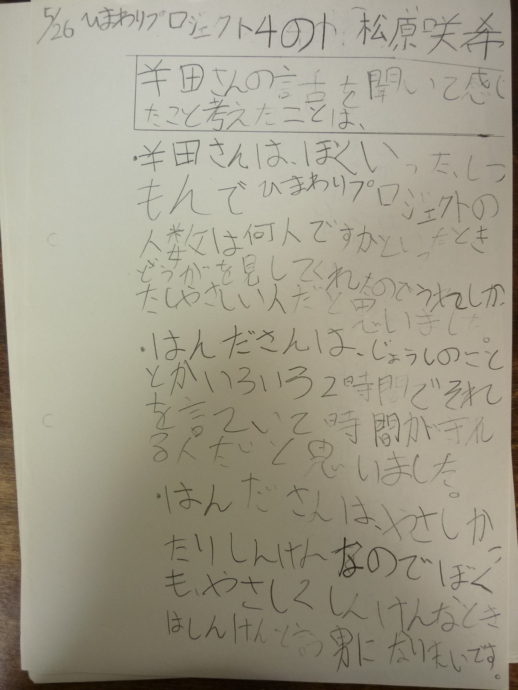 5/26 ひまわりプロジェクト4の1 松原咲希
半田さんの話を聞いて感じ
たこと考えたことは、
・半田さんは、ぼくいった、しつ
もんでひまわりプロジェクトの
人数は何人ですかといったとき
どうがを見してくれたのでうれしか
たしやさしい人だと思いました。
・はんださんは、じょうしのこと
とかいろいろ2時間でそれ
を言ていて時間が守れ
る人だと思いました。
・はんださんは、やさしか
たりしんけんなのでぼく
も、やさしくしんけんなとき
はしんけんと言う男になりたいです。